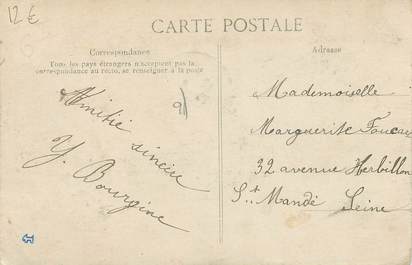 12 €
CARTE POSTALE
Correspondance
Tous les pays étrangers n'acceptent pas la
correspondance au recto, se renseigner à la poste
Amitié sincère
Y. Bourgine
Adresse
Mademoiselle
Marguerite
32 avenue Herbillon
St Mandé Seine